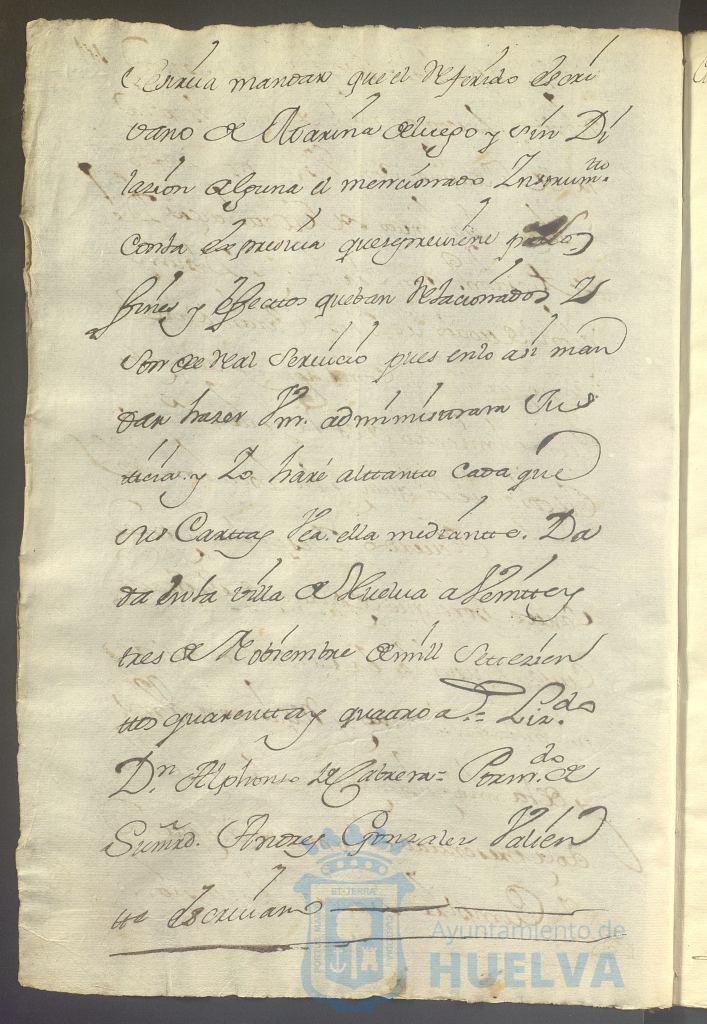 se sirva mandar que el referido escri
vano de Marina de luego y sin Di
lazion alguna el mencionado Instrum.to
con la expresiva que se previene para los
fines y efectos que ban relacionados y
son de Real Servicio pues en lo asi man
dar hazer Vm. administrara Jus
ticia y Yo haré al tanto cada que
sus Carttas Vea. ella mediantte. Da
da en la villa de Huelva a Veintte y
tres de Nobiembre de mill settezien
ttos quarentta y quattro a.s = Liz.do
D.n Alphonso de Cabrera = Por m.do de
Sumrd. Andres Gonzalez Valien
tte escrivano
ET-TERRÆ
Ayuntamiento de
HUELVA